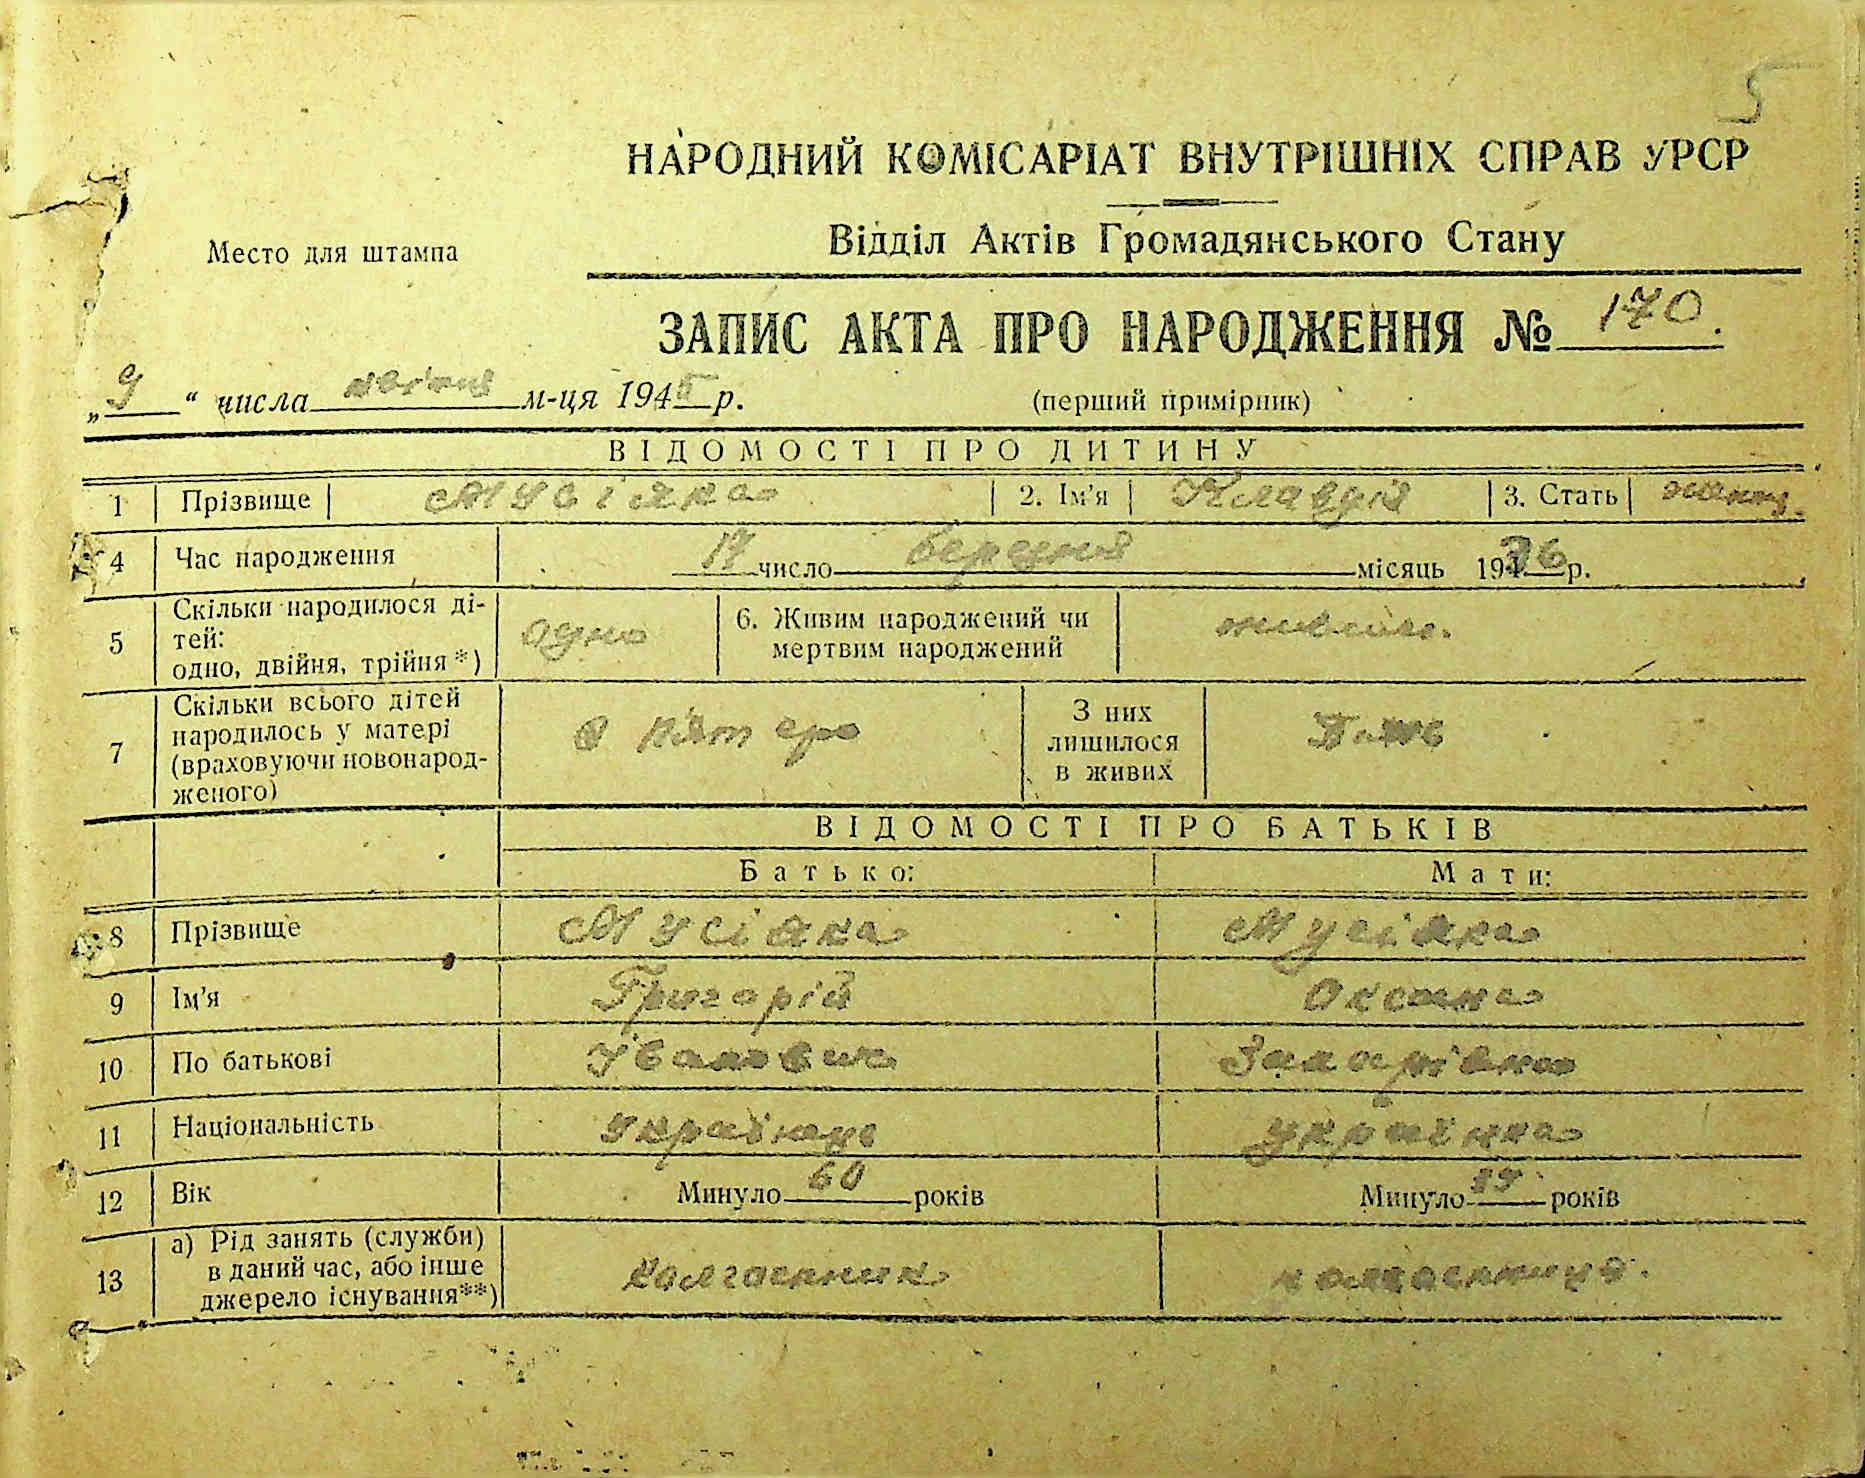 5
НАРОДНИЙ КОМІСАРІАТ ВНУТРІШНІХ СПРАВ УРСР
Место для штампа
Відділ Актів Громадянського Стану
ЗАПИС АКТА ПРО НАРОДЖЕННЯ № 170.
„9“ числа квітня м-ця 1945 р.
(перший примірник)
ВІДОМОСТІ ПРО ДИТИНУ
1 Прізвище Мусіяка 2. Ім'я Клавдія 3. Стать жіноч.
4 Час народження 17 число березня місяць 1936 р.
5 Скільки народилося ді-
тей:
одно, двійня, трійня*) одно 6. Живим народжений чи
мертвим народжений живим.
7 Скільки всього дітей
народилось у матері
(враховуючи новонарод-
женого) п'ятеро З них
лишилося
в живих
ВІДОМОСТІ ПРО БАТЬКІВ
Батько: Мати:
8 Прізвище Мусіяка Мусіяка
9 Ім'я Григорій Оксана
10 По батькові Іванович Захарівна
11 Національність українець українка
12 Вік Минуло 60 років Минуло років
13 а) Рід занять (служби)
в даний час, або інше
джерело існування**) колгоспник колгоспниця.